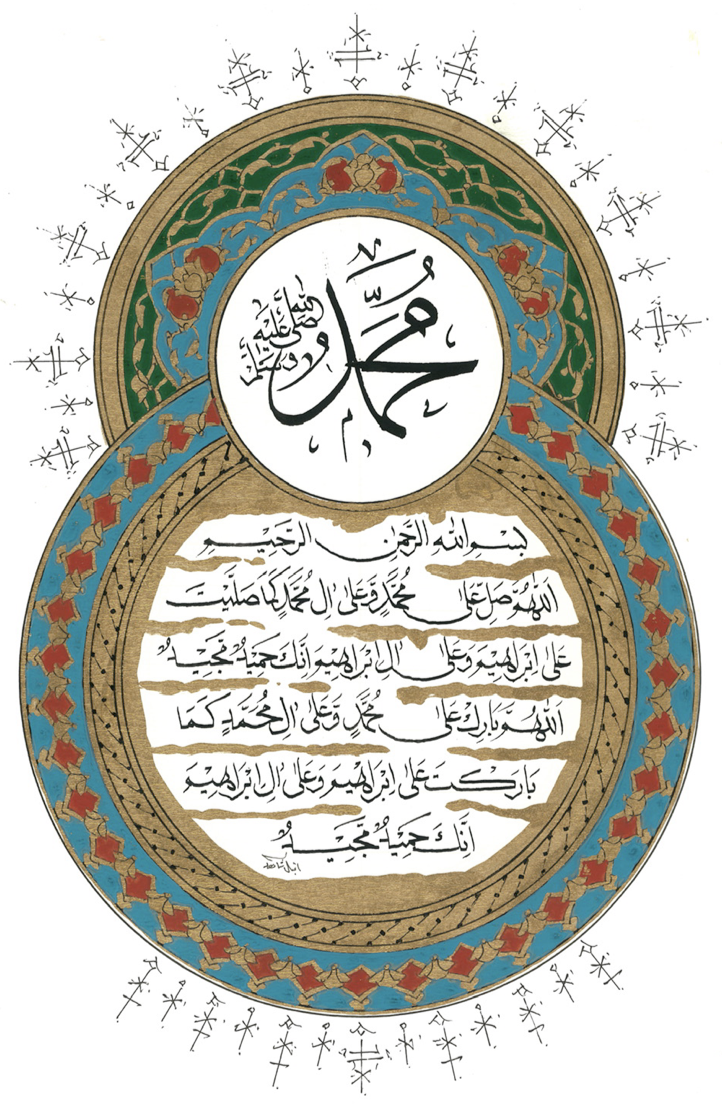 محمد
صلى الله عليه وسلم
بسم الله الرحمن الرحيم
اللهم صل على محمد وعلى ال محمد كما صليت
على ابراهيم وعلى ال ابراهيم انك حميد مجيد
اللهم بارك على محمد وعلى ال محمد كما
باركت على ابراهيم وعلى ال ابراهيم
انك حميد مجيد